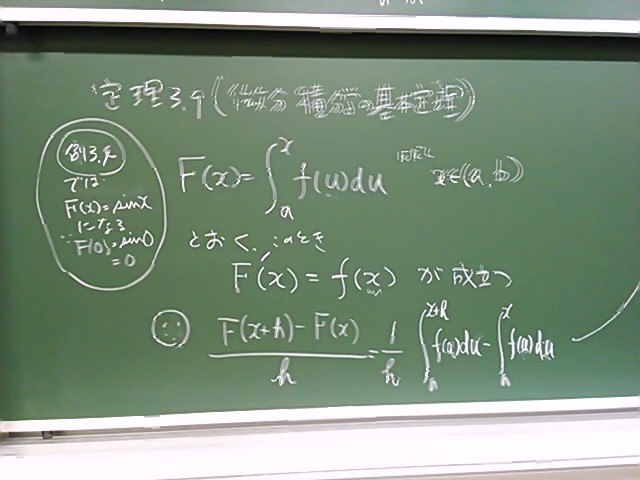 定理3.9(微分積分の基本定理)
例3.4
では
F(x)=sinx
になる
∵F(0)=sin0
=0
F(x)=∫_a^x f(u)du ただし x∈(a,b)
とおく.このとき
F'(x)=f(x) が成立つ
∵ \frac{F(x+h)-F(x)}{h}=\frac{1}{h} ∫_h^{x+h} f(u)du-∫_h^x f(u)du